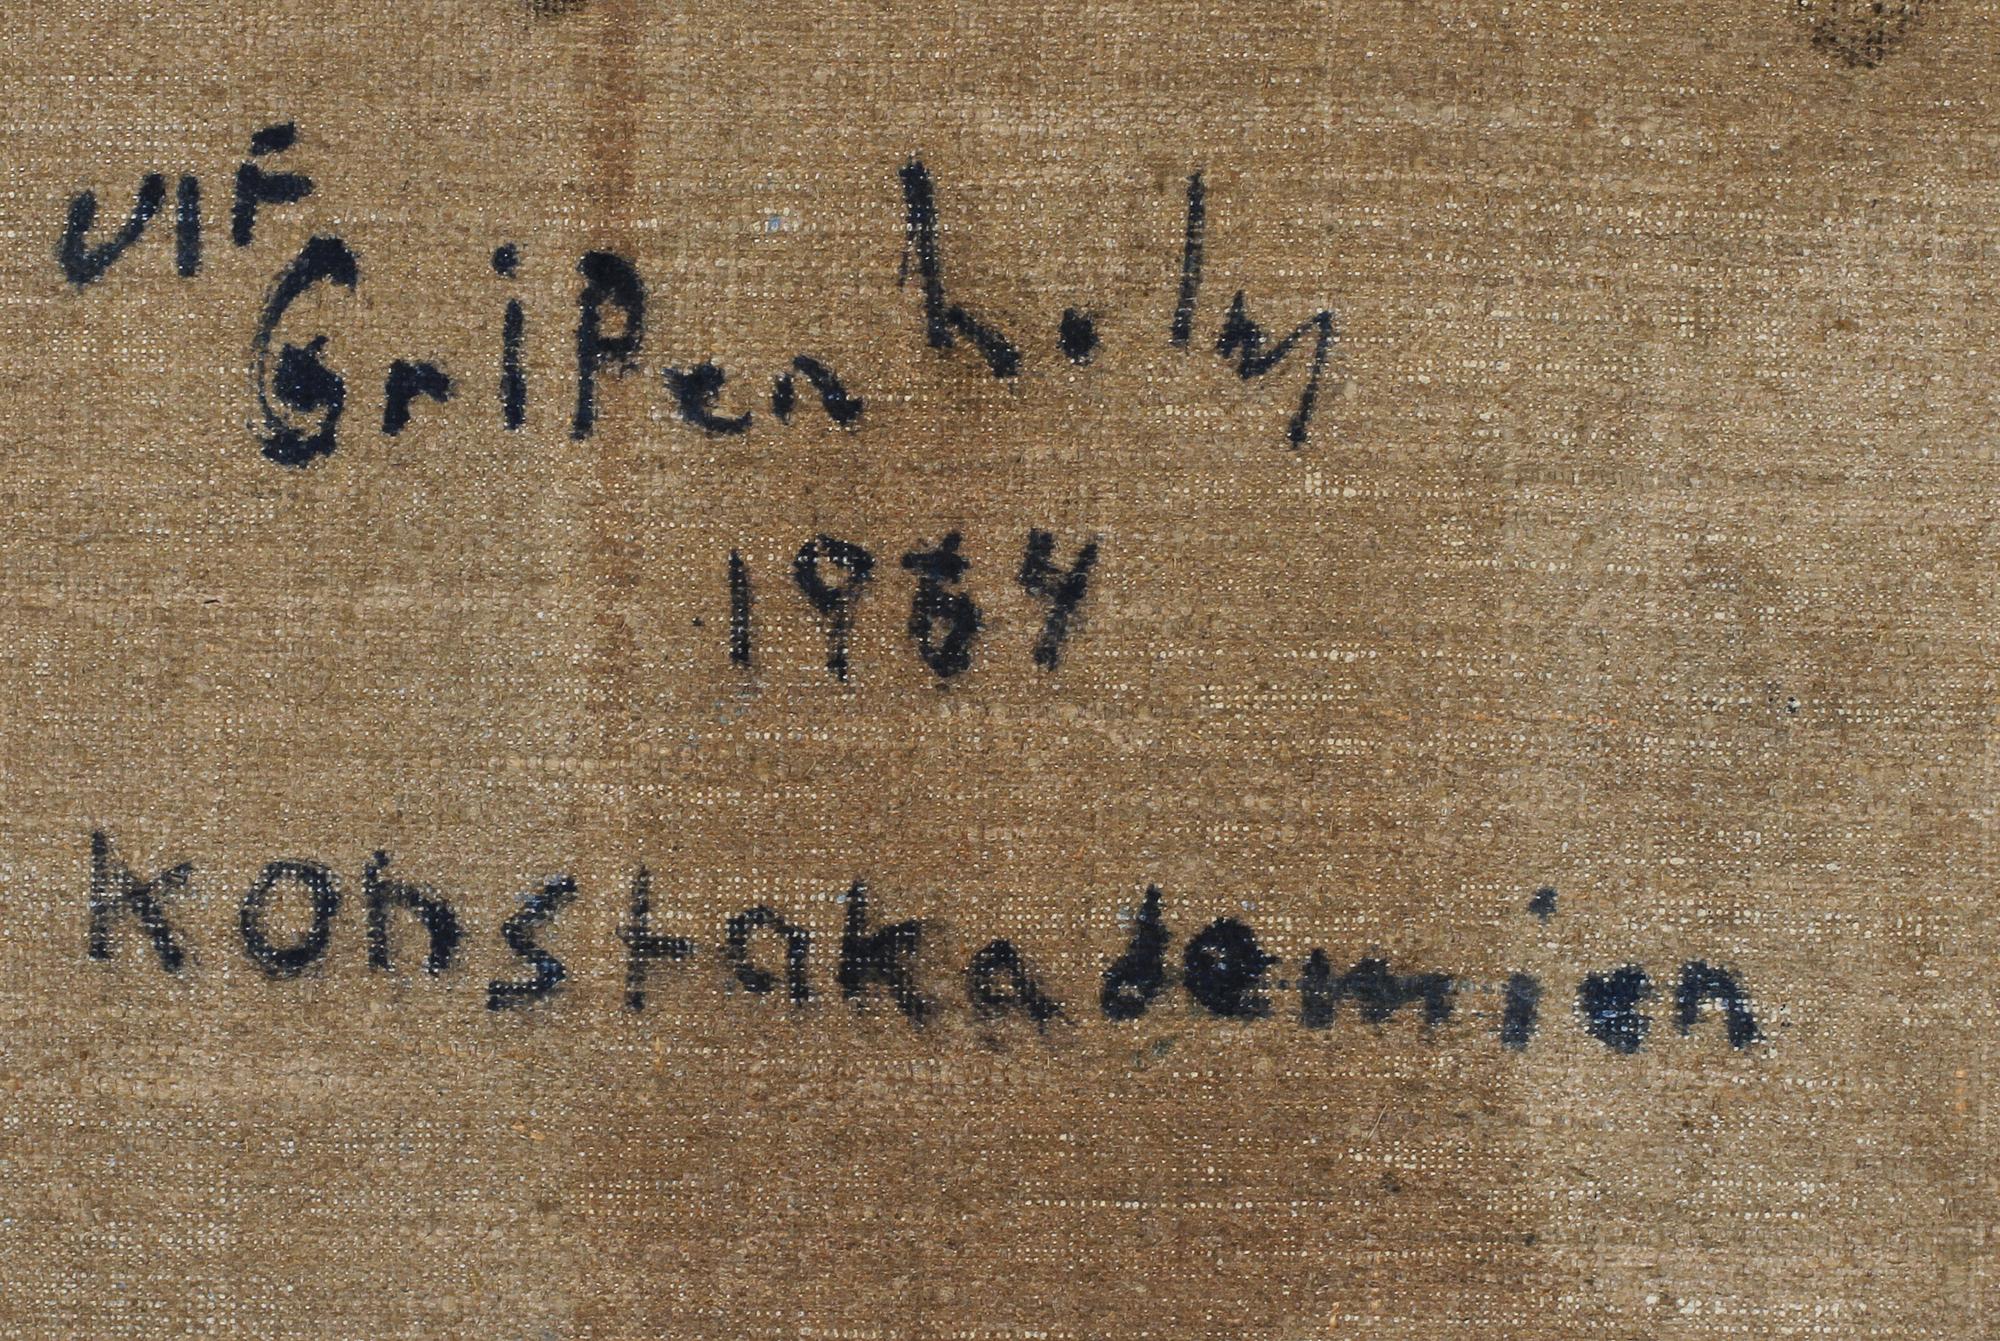 Ulf
Gripenholm
1964
Konstakademien